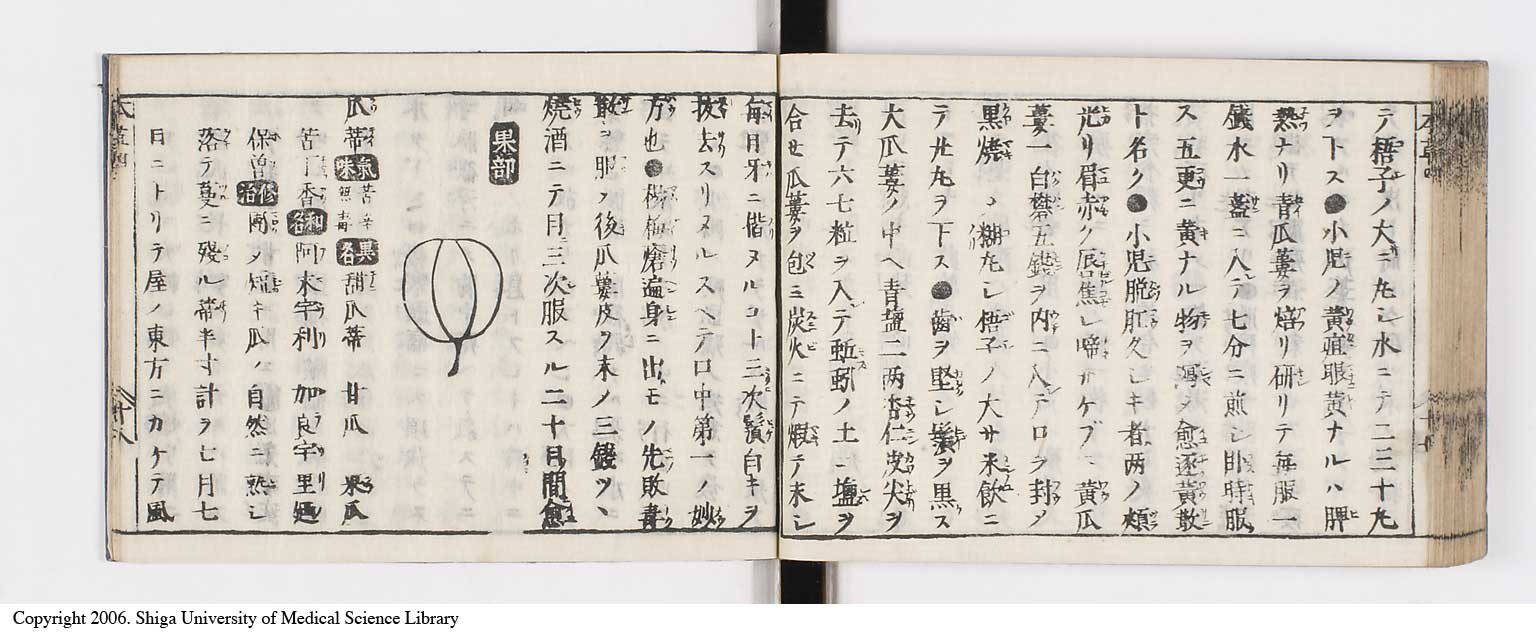 テ梧子ノ大ニ丸シ水ニテ二三十丸
ヲ下ス●小児ノ黄疸眼黄ナルハ脾
熱ナリ青瓜蔞ヲ焙リ研リテ毎服一
銭水一盞ニ入テ七分ニ煎シ卧時服
ス五更ニ黄ナル物ヲ瀉メ愈逐黄散
ト名ク●小児脱肛久シキ者両ノ頬
光リ眉赤ク唇焦レ啼サケブ、黄瓜
蔞一白礬五銭ヲ内ニ入戸口ヲ封メ
黒焼ノ糊丸シ梧子ノ大サ米飲ニ
テ廿丸ヲ下ス●歯ヲ堅シ鬚ヲ黒ス
大瓜蔞ノ中ヘ青塩二両杏仁皮尖ヲ
去テ六七粒ヲ入テ蚯蚓ノ土ニ塩ヲ
合セ瓜蔞ヲ包ミ炭火ニテ煆テ末シ
毎日牙ニ揩ヌルコト三次鬚白キヲ
抜去スリヌルスヘテ口中第一ノ妙
方也●楊梅瘡遍身ニ出モノ先敗毒
散ヲ服メ後瓜蔞皮ヲ末ノ三銭ツヽ
焼酒ニテ日三次服スル二十日間愈
果部
瓜蒂 氣味苦寒毒 異名甜瓜蒂 甘瓜 果瓜
苦丁香 和名阿末宇利 加良宇里廼
保曽 修治團ク短キ瓜ノ自然ニ熟シ
落テ蔓ニ残ル蒂半寸計ヲ七月七
日ニトリテ屋ノ東方ニカケテ風
本草四
八十八
Copyright 2006. Shiga University of Medical Science Library